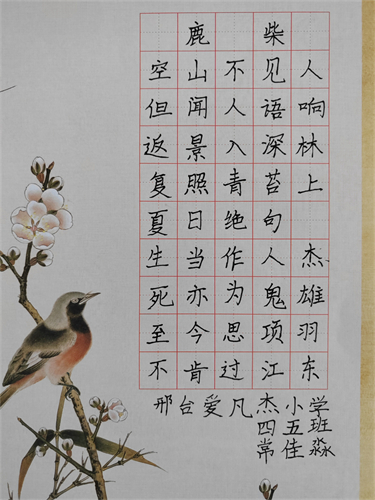 鹿柴
空山不见人
但闻人语响
返景入深林
复照青苔上
夏日绝句
生当作人杰
死亦为鬼雄
至今思项羽
不肯过江东
邢台爱凡杰小学
四五班
常佳淼